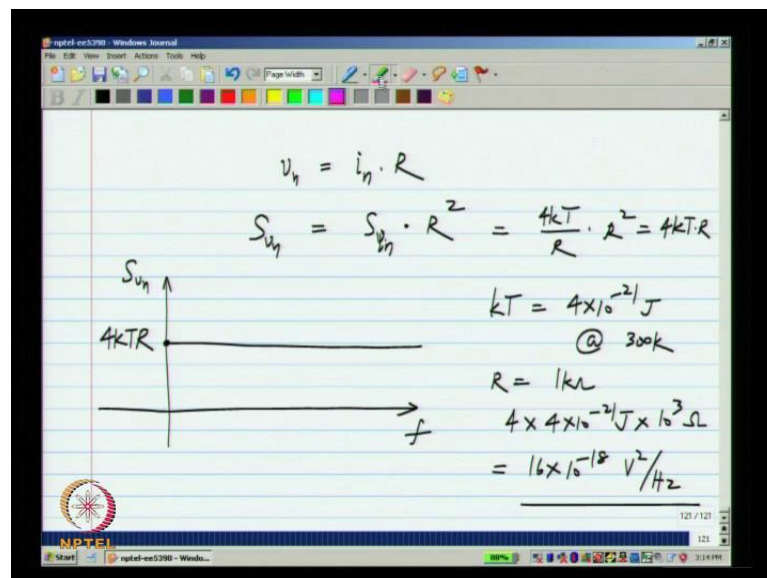 nptel-ee5390 - Windows Journal
File Edit View Insert Actions Tools Help
Page Width
B I
v_n = i_n · R
S_{v_n} = S_{i_n} · R^2 = 4kT/R · R^2 = 4kT·R
S_{v_n}
kT = 4×10^{-21} J
4kTR
@ 300K
R = 1kΩ
f
4 × 4×10^{-21} J × 10^3 Ω
= 16×10^{-18} V^2/Hz
121 / 121
121
NPTEL
Start
nptel-ee5390 - Windo...
3:14 PM